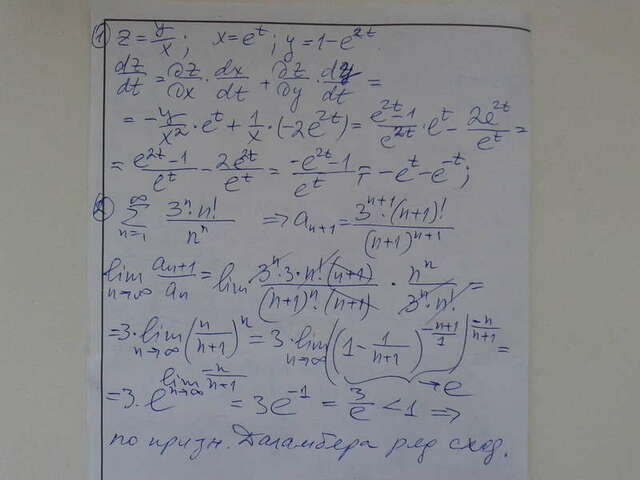 ① z = y/x ; x = e^t ; y = 1 - e^{2t}.
dz/dt = ∂z/∂x · dx/dt + ∂z/∂y · dy/dt =
= - y/x² · e^t + 1/x · (-2e^{2t}) = (e^{2t} - 1)/e^{2t} · e^t - 2e^{2t}/e^t =
= (e^{2t} - 1)/e^t - 2e^{2t}/e^t = (-e^{2t} - 1)/e^t = -e^t - e^{-t};
② ∑_{n=1}^∞ 3^n·n!/n^n ⇒ a_{n+1} = 3^{n+1}·(n+1)!/(n+1)^{n+1}
lim_{n→∞} a_{n+1}/a_n = lim 3^n·3·n!(n+1)/((n+1)^n·(n+1)) · n^n/(3^n·n!) =
= 3·lim_{n→∞} (n/(n+1))^n = 3·lim_{n→∞} ((1 - 1/(n+1))^{-(n+1)/1})^{-n/(n+1)} =
→ e
= 3·e^{lim_{n→∞} -n/(n+1)} = 3e^{-1} = 3/e < 1 ⇒
по призн. Даламбера ряд сход.